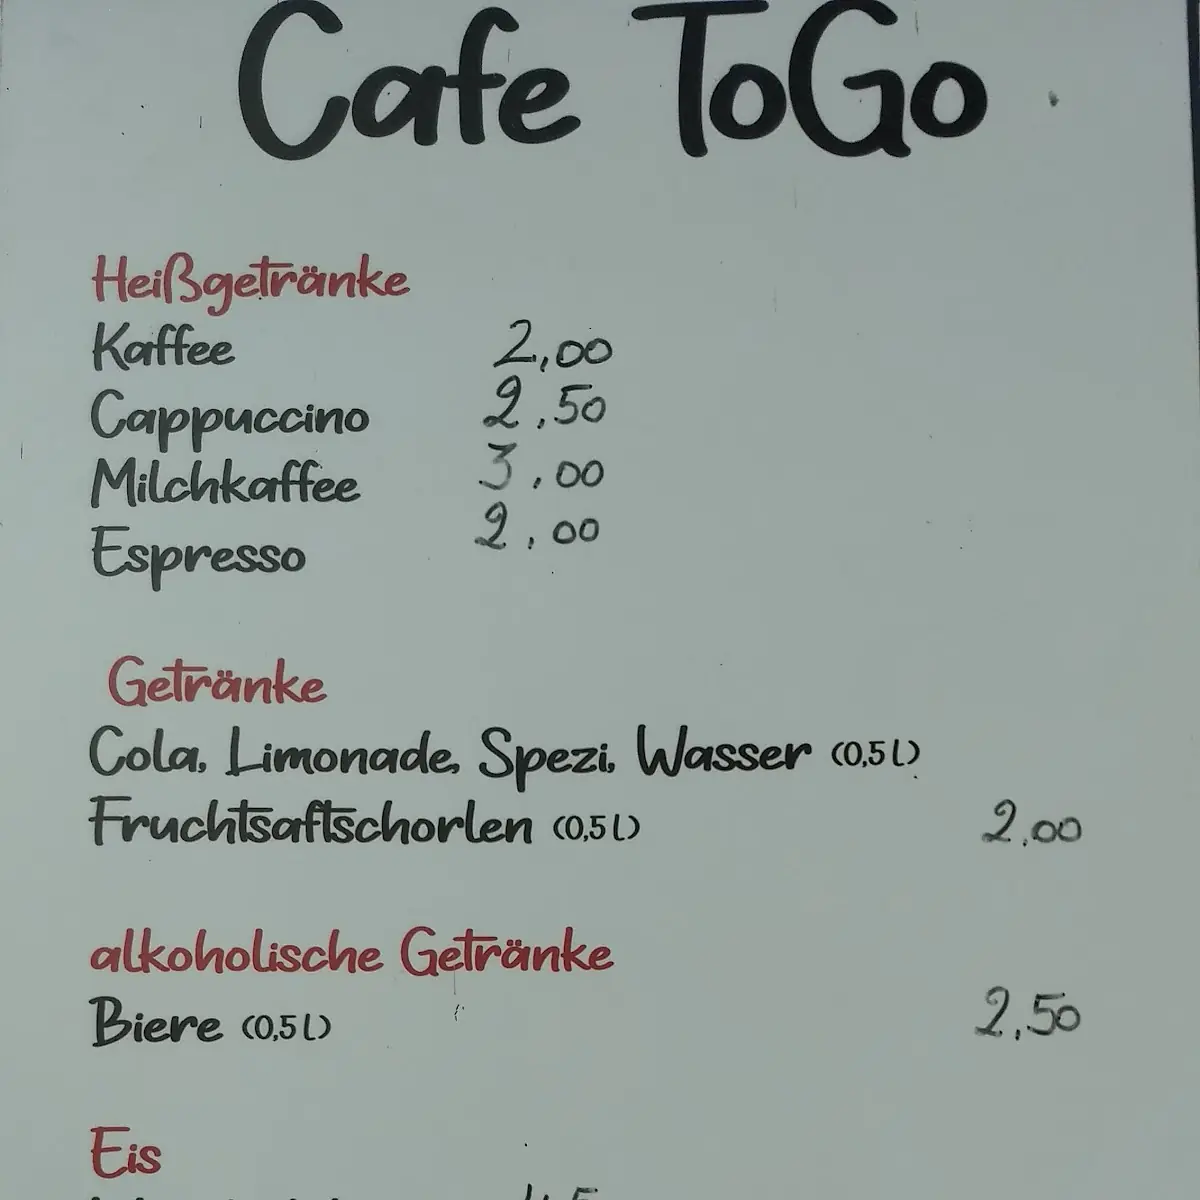 Cafe ToGo
Heißgetränke
Kaffee 2,00
Cappuccino 2,50
Milchkaffee 3,00
Espresso 2,00
Getränke
Cola, Limonade, Spezi, Wasser (0,5 L)
Fruchtsaftschorlen (0,5 L) 2,00
alkoholische Getränke
Biere (0,5 L) 2,50
Eis